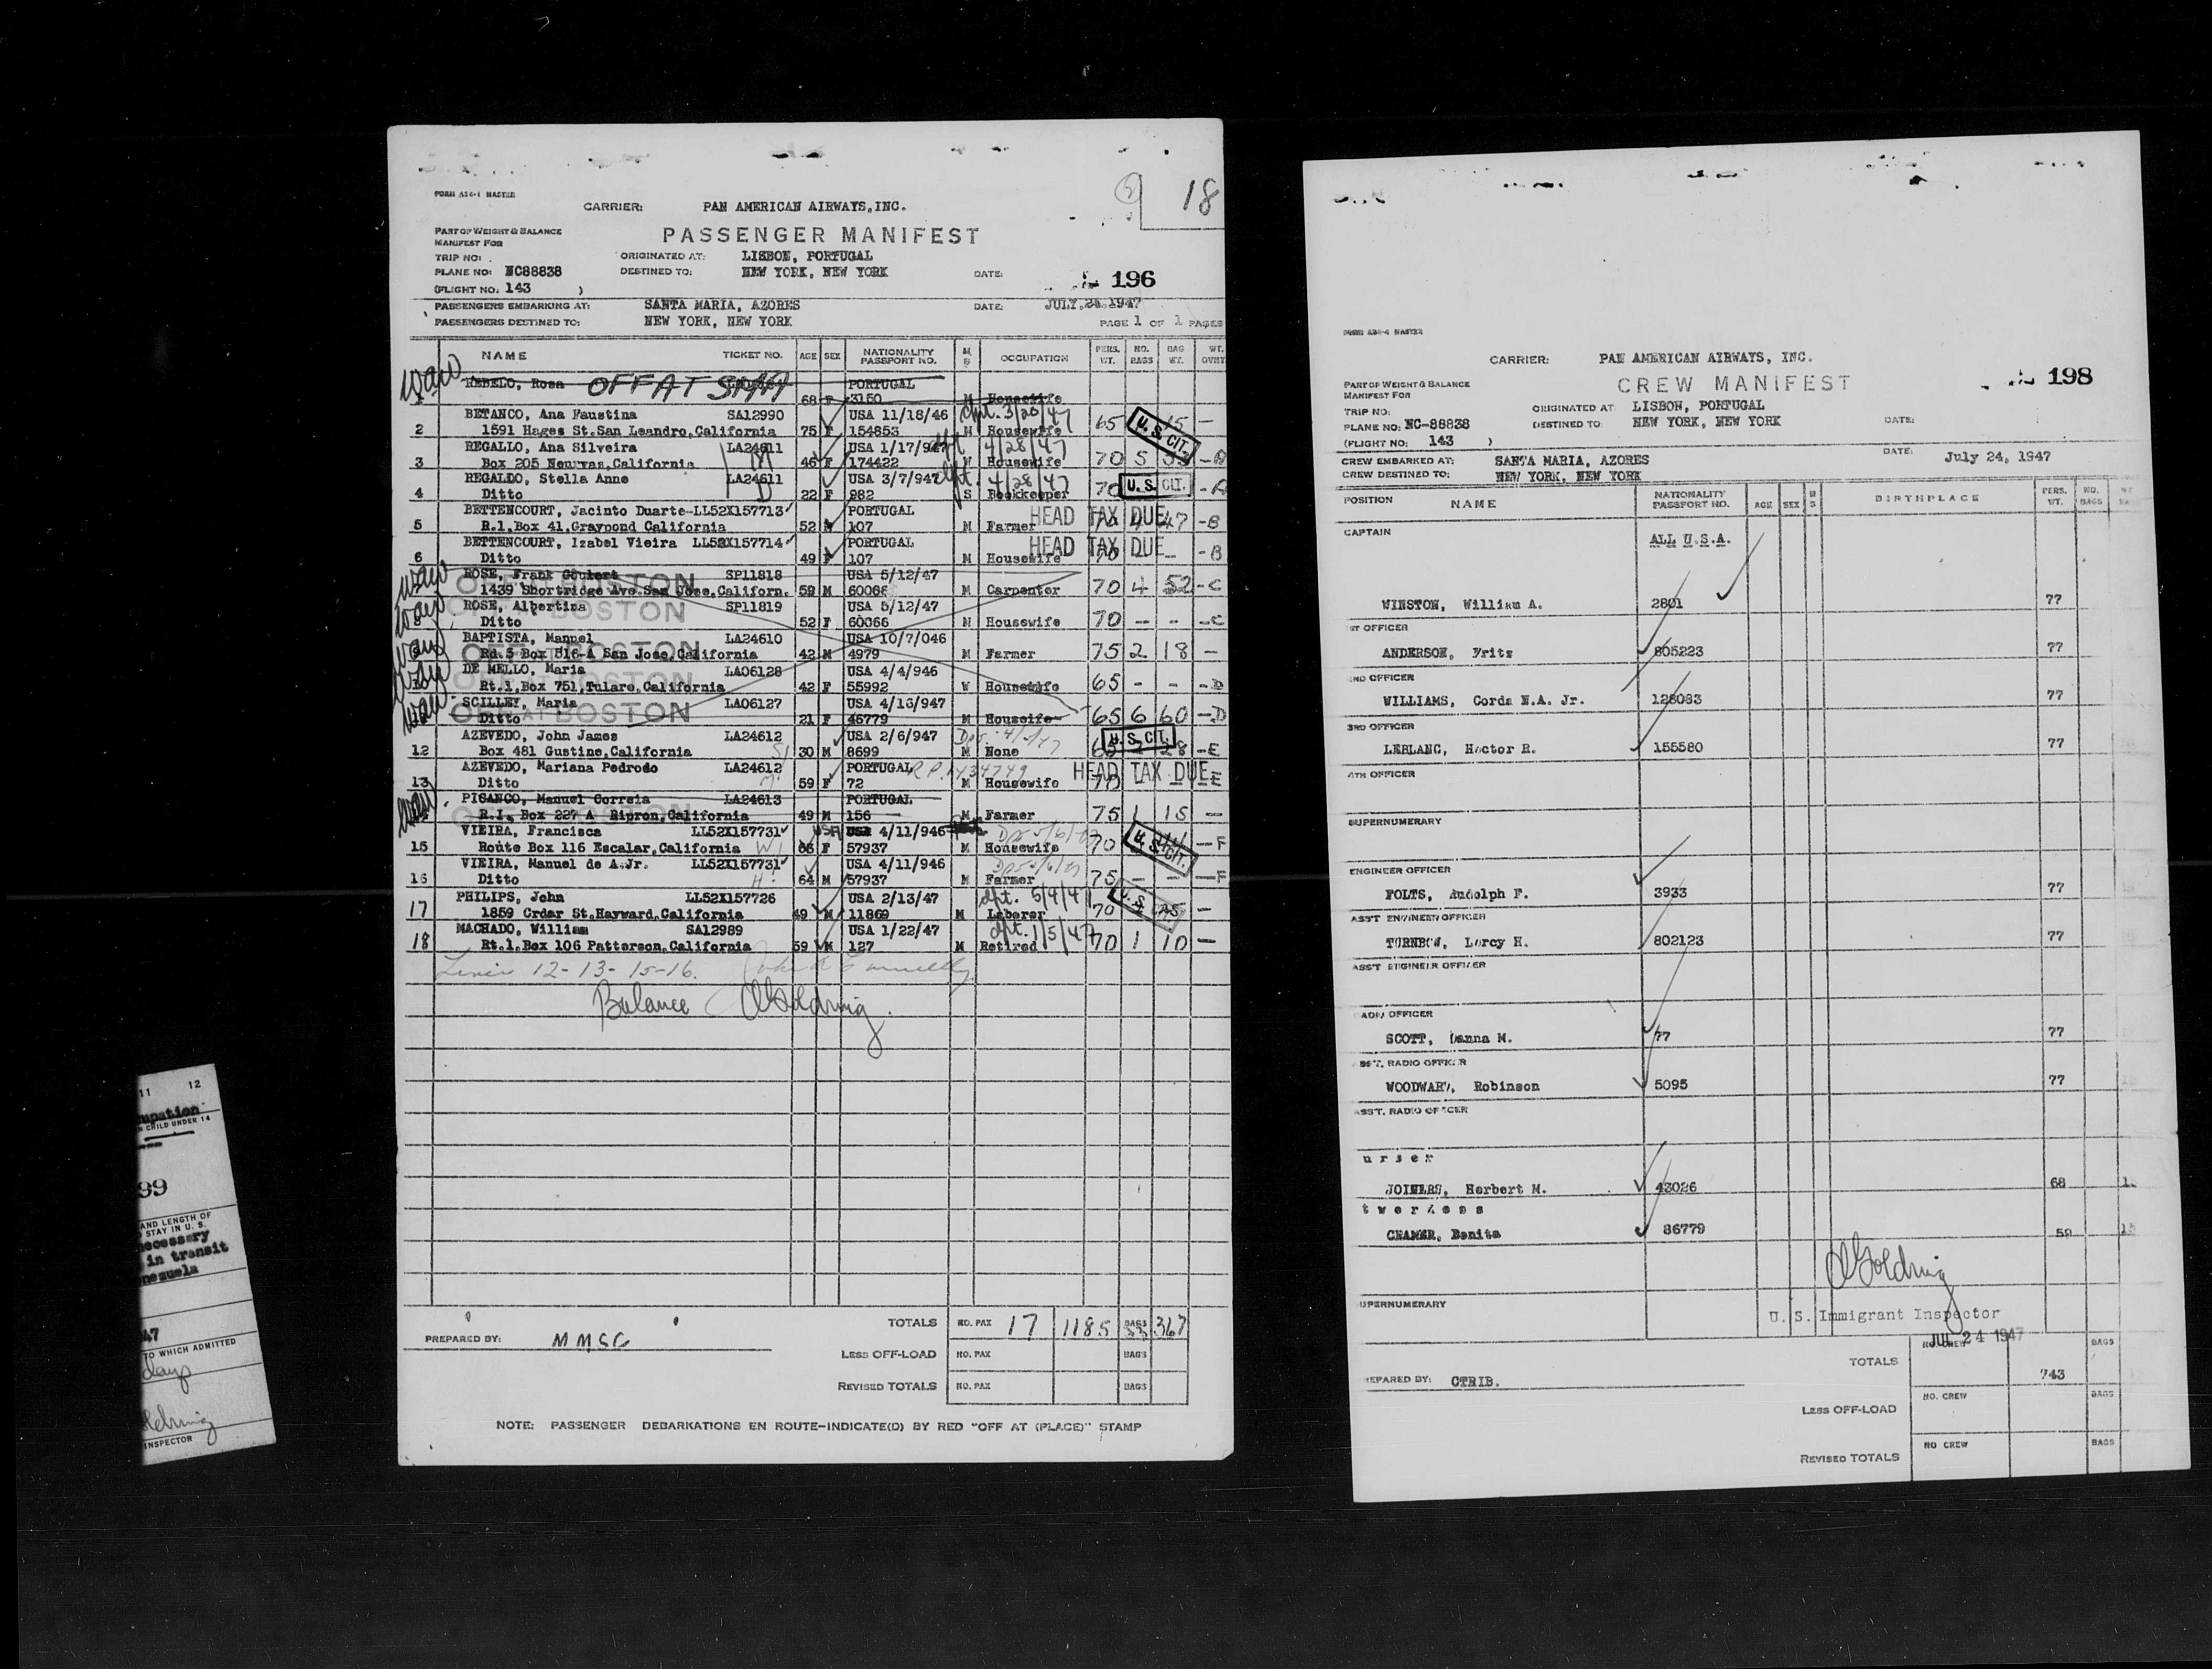 11 12
upation
N CHILD UNDER 14
99
AND LENGTH OF
STAY IN U. S.
necessary
in transit
nezuela
47
TO WHICH ADMITTED
days
oldring
INSPECTOR
FORM 434-1 MASTER
18
CARRIER: PAN AMERICAN AIRWAYS, INC.
PART OF WEIGHT & BALANCE
MANIFEST FOR
PASSENGER MANIFEST
TRIP NO: ORIGINATED AT: LISBON, PORTUGAL
PLANE NO: NC88838 DESTINED TO: NEW YORK, NEW YORK DATE: 196
(FLIGHT NO. 143 )
PASSENGERS EMBARKING AT: SANTA MARIA, AZORES DATE: JULY 24 1947
PASSENGERS DESTINED TO: NEW YORK, NEW YORK PAGE 1 OF 1 PAGES
NAME TICKET NO. AGE SEX NATIONALITY PASSPORT NO. M S OCCUPATION PERS. WT. NO. BAGS BAG WT. WT. OVER
REBELO, Rosa OFF AT SMA PORTUGAL
1 68 F 3150 M Housewife
BETANCO, Ana Faustina SA12990 USA 11/18/46 dpt. 3/20/47
2 1591 Hages St.San Leandro,California 75 F 154853 M Housewife 65 U.S. CIT. 15 -
REGALLO, Ana Silveira LA24611 USA 1/17/947 dpt 4/28/47
3 Box 205 California 46 F 174422 W Housewife 70 5
REGALDO, Stella Anne LA24611 USA 3/7/947 dpt. 4/28/47
4 Ditto 22 F 982 S Bookkeeper 70 U.S. CIT. -A
BETTENCOURT, Jacinto Duarte-LL52X157713 PORTUGAL HEAD TAX DUE
5 R.1.Box 41.Graypond California 52 M 107 M Farmer 47 -B
BETTENCOURT, Izabel Vieira LL52X157714 PORTUGAL HEAD TAX DUE
6 Ditto 49 F 107 M Housewife 70 - -B
ROSE, Frank Goulart SP11818 USA 5/12/47
OFF AT BOSTON
1439 Shortridge Ave.San Jose,Californ. 59 M 60066 M Carpenter 70 4 52 -C
ROSE, Albertina SP11819 USA 5/12/47
OFF AT BOSTON
8 Ditto 52 F 60066 M Housewife 70 - - -C
BAPTISTA, Manuel LA24610 USA 10/7/046
OFF AT BOSTON
Rd.3 Box 816-A San Jose,California 42 M 4979 M Farmer 75 2 18 -
DE MELLO, Maria LA06128 USA 4/4/946
OFF AT BOSTON
10 Rt.1,Box 751,Tulare,California 42 F 55992 W Housewife 65 - - -D
SCILLEY, Maria LA06127 USA 4/16/947
OFF AT BOSTON
Ditto 21 F 46779 M Houseife 65 6 60 -D
AZEVEDO, John James LA24612 USA 2/6/947
12 Box 481 Gustine,California 30 M 8699 M None U.S. CIT. 28 -E
AZEVEDO, Mariana Pedrodo LA24612 PORTUGAL R.P. 1434749 HEAD TAX DUE
13 Ditto 59 F 72 M Housewife 70 E
PISANCO, Manuel Correia LA24613 PORTUGAL
OFF AT BOSTON
R.I. Box 227 A Ripron,California 49 M 156 M Farmer 75 1 15 -
VIEIRA, Francisca LL52X157731 USA 4/11/946
15 Route Box 116 Escalar,California 66 F 57937 M Housewife 70 U.S. CIT. -F
VIEIRA, Manuel de A.Jr. LL52X157731 USA 4/11/946
16 Ditto 64 M 57937 M Farmer 75 - - -F
PHILIPS, John LL52X157726 USA 2/13/47 dpt. 5/4/47
17 1859 Crdar St.Hayward,California 49 M 11869 M Laborer 70 -
MACHADO, William SA12989 USA 1/22/47 dpt. 1/5/47
18 Rt.1.Box 106 Patterson,California 59 M 127 M Retired 70 1 10 -
Lines 12-13-15-16. John A Connelly
Balance Goldring
TOTALS NO. PAX 17 1185 BAGS 367
PREPARED BY: MMSC
LESS OFF-LOAD NO. PAX BAGS
REVISED TOTALS NO. PAX BAGS
NOTE: PASSENGER DEBARKATIONS EN ROUTE-INDICATE(D) BY RED "OFF AT (PLACE)" STAMP
FORM 434-4 MASTER
CARRIER: PAN AMERICAN AIRWAYS, INC.
PART OF WEIGHT & BALANCE
MANIFEST FOR
CREW MANIFEST 198
TRIP NO: ORIGINATED AT LISBON, PORTUGAL
PLANE NO: NC-88838 DESTINED TO: NEW YORK, NEW YORK DATE:
(FLIGHT NO: 143 )
CREW EMBARKED AT: SANTA MARIA, AZORES DATE: July 24, 1947
CREW DESTINED TO: NEW YORK, NEW YORK
POSITION NAME NATIONALITY PASSPORT NO. AGE SEX M S BIRTHPLACE PERS. WT. NO. BAGS
CAPTAIN ALL U.S.A.
WINSTON, William A. 2801 77
1ST OFFICER
ANDERSON, Fritz 805223 77
2ND OFFICER
WILLIAMS, Corda N.A. Jr. 128083 77
3RD OFFICER
LEBLANC, Hector R. 155580 77
4TH OFFICER
SUPERNUMERARY
ENGINEER OFFICER
FOLTS, Rudolph F. 3933 77
ASS'T ENGINEER OFFICER
TURNBOW, Leroy H. 802123 77
ASS'T ENGINEER OFFICER
RADIO OFFICER
SCOTT, Danna M. 77 77
ASS'T. RADIO OFFICER
WOODWARD, Robinson 5095 77
ASS'T. RADIO OFFICER
urser
JOINERS, Herbert M. 43026 68
twerdess
CRAMER, Benita 86779 59 15
Goldring
SUPERNUMERARY U. S. Immigrant Inspector
JUL 24 1947
TOTALS NO. CREW 743 BAGS
PREPARED BY: CTRIB.
LESS OFF-LOAD NO. CREW BAGS
REVISED TOTALS NO CREW BAGS